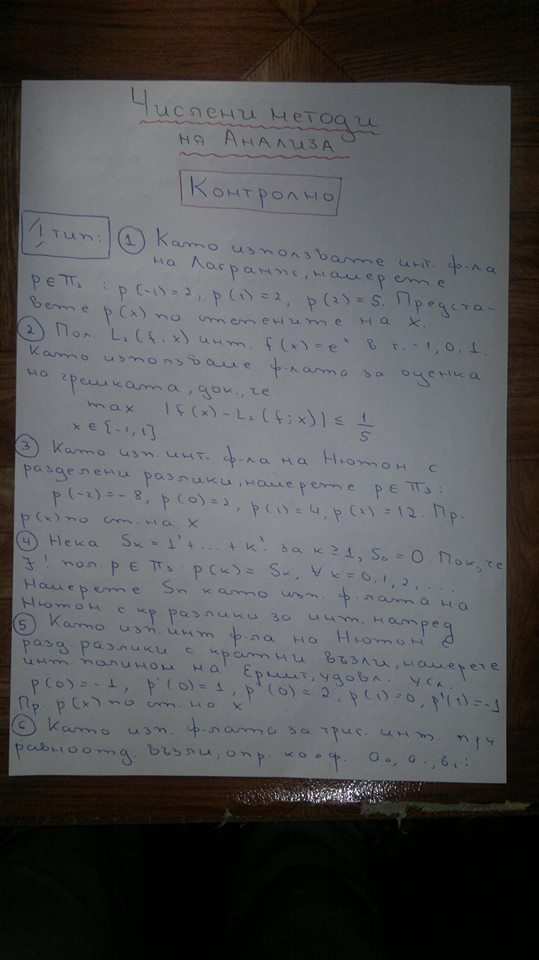 Числени методи
ня Анализа
Контролно
I тип: ① Като използвате инт. ф-ла
на Лагранж, намерете
p∈π₂ : p(-1)=2, p(1)=2, p(2)=5. Предста-
вете p(x) по степените на x.
② Пол. L₂(f;x) инт. f(x)=eˣ в т. -1, 0, 1.
Като използваме ф-лата за оценка
на грешката, док., че
max |f(x)-L₂(f;x)| ≤ 1/5
x∈[-1,1]
③ Като изп. инт. ф-ла на Нютон с
разделени разлики, намерете p∈π₃:
p(-2)=-8, p(0)=2, p(1)=4, p(2)=12. Пр.
p(x) по ст. на x
④ Нека Sₖ=1²+...+k² за k≥1, S₀=0. Пок, че
∃! пол. p∈π₃: p(k)=Sₖ, ∀k=0,1,2,...
Намерете Sn като изп. ф-лата на
Нютон с кр разлики за инт. напред
⑤ Като изп. инт. ф-ла на Нютон с
разд разлики с кратни възли, намерете
инт. полином на Ермит, удовл. усл.
p(0)=-1, p'(0)=1, p''(0)=2, p(1)=0, p'(1)=-1
Пр. p(x) по ст. на x
⑥ Като изп. ф-лата за триг. инт. при
равноотд. възли, опр. коеф. a₀, a₁, b₁: